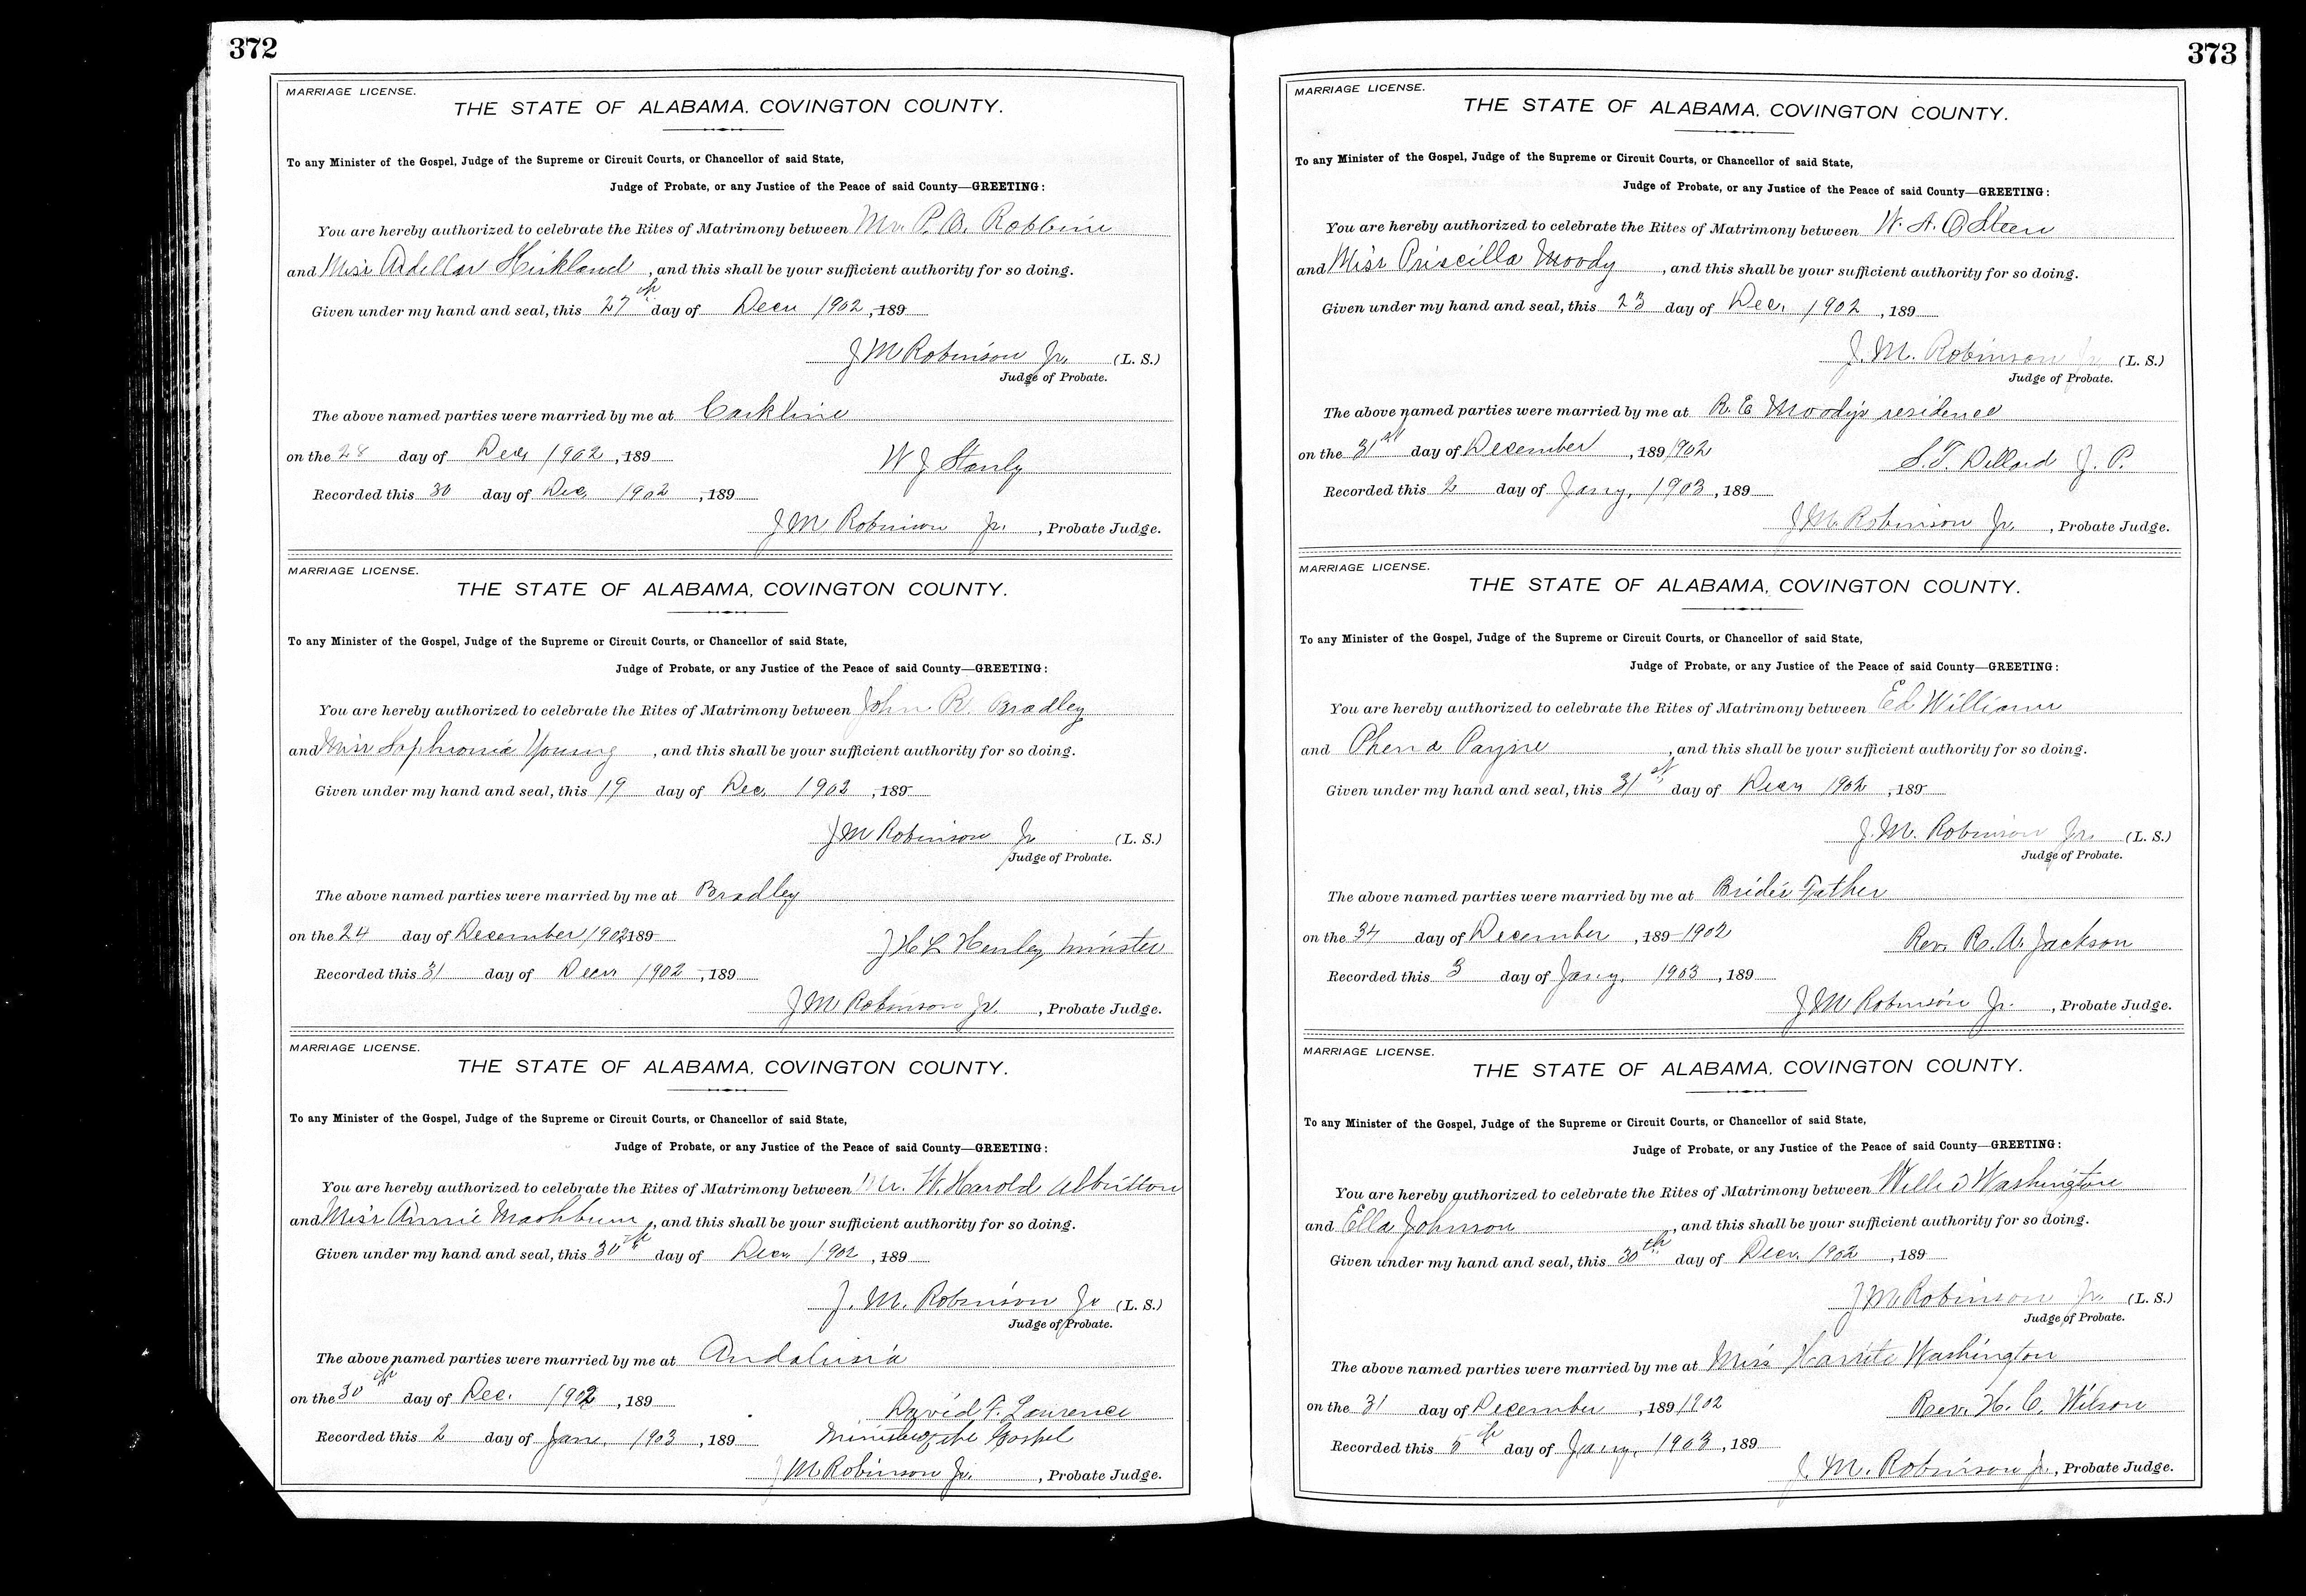 372
MARRIAGE LICENSE.
THE STATE OF ALABAMA, COVINGTON COUNTY.
To any Minister of the Gospel, Judge of the Supreme or Circuit Courts, or Chancellor of said State,
Judge of Probate, or any Justice of the Peace of said County—GREETING:
You are hereby authorized to celebrate the Rites of Matrimony between Mr. P. A. Robbins
and Miss Ardellar Kirkland, and this shall be your sufficient authority for so doing.
Given under my hand and seal, this 27th day of Decr 1902, 189
J M Robinson Jr. (L. S.)
Judge of Probate.
The above named parties were married by me at
on the 28 day of Dec, 1902, 189
W J Stanly
Recorded this 30 day of Dec, 1902, 189
J M Robinson Jr., Probate Judge.
MARRIAGE LICENSE.
THE STATE OF ALABAMA, COVINGTON COUNTY.
To any Minister of the Gospel, Judge of the Supreme or Circuit Courts, or Chancellor of said State,
Judge of Probate, or any Justice of the Peace of said County—GREETING:
You are hereby authorized to celebrate the Rites of Matrimony between John R. Bradley
and Miss Sophronia Young, and this shall be your sufficient authority for so doing.
Given under my hand and seal, this 19 day of Dec. 1902, 189
J M Robinson Jr (L. S.)
Judge of Probate.
The above named parties were married by me at Bradley
on the 24 day of December 1902 189
J H L Henley minister
Recorded this 31 day of Decr 1902, 189
J M Robinson Jr., Probate Judge.
MARRIAGE LICENSE.
THE STATE OF ALABAMA, COVINGTON COUNTY.
To any Minister of the Gospel, Judge of the Supreme or Circuit Courts, or Chancellor of said State,
Judge of Probate, or any Justice of the Peace of said County—GREETING:
You are hereby authorized to celebrate the Rites of Matrimony between Mr. W. Harold Albritton
and Miss Annie Mashburn, and this shall be your sufficient authority for so doing.
Given under my hand and seal, this 30th day of Decr 1902, 189
J. M. Robinson Jr (L. S.)
Judge of Probate.
The above named parties were married by me at Andalusia
on the 30th day of Dec. 1902, 189
David F. Laurence
Recorded this 2 day of Jan, 1903, 189
Minister of the Gospel
J M Robinson Jr., Probate Judge.
373
MARRIAGE LICENSE.
THE STATE OF ALABAMA, COVINGTON COUNTY.
To any Minister of the Gospel, Judge of the Supreme or Circuit Courts, or Chancellor of said State,
Judge of Probate, or any Justice of the Peace of said County—GREETING:
You are hereby authorized to celebrate the Rites of Matrimony between W. A. O Steen
and Miss Priscilla Moody, and this shall be your sufficient authority for so doing.
Given under my hand and seal, this 23 day of Dec. 1902, 189
J. M. Robinson Jr (L. S.)
Judge of Probate.
The above named parties were married by me at R. E Moody's residence
on the 31st day of December, 189 1902
S. T. Dillard J. P.
Recorded this 2 day of Jany, 1903, 189
J M Robinson Jr., Probate Judge.
MARRIAGE LICENSE.
THE STATE OF ALABAMA, COVINGTON COUNTY.
To any Minister of the Gospel, Judge of the Supreme or Circuit Courts, or Chancellor of said State,
Judge of Probate, or any Justice of the Peace of said County—GREETING:
You are hereby authorized to celebrate the Rites of Matrimony between Ed Williams
and Phena Payne, and this shall be your sufficient authority for so doing.
Given under my hand and seal, this 31st day of Decr 1902, 189
J. M. Robinson Jr. (L. S.)
Judge of Probate.
The above named parties were married by me at Bride's Father
on the 31 day of December, 189 1902
Rev. R. A. Jackson
Recorded this 3 day of Jany, 1903, 189
J M Robinson Jr., Probate Judge.
MARRIAGE LICENSE.
THE STATE OF ALABAMA, COVINGTON COUNTY.
To any Minister of the Gospel, Judge of the Supreme or Circuit Courts, or Chancellor of said State,
Judge of Probate, or any Justice of the Peace of said County—GREETING:
You are hereby authorized to celebrate the Rites of Matrimony between Washington
and Ella Johnson, and this shall be your sufficient authority for so doing.
Given under my hand and seal, this 30th day of Decr. 1902, 189
J M Robinson Jr. (L. S.)
Judge of Probate.
The above named parties were married by me at Miss Washington
on the 31 day of December, 189 1902
Rev. H. C. Wilson
Recorded this 5th day of Jany, 1903, 189
J. M. Robinson Jr, Probate Judge.